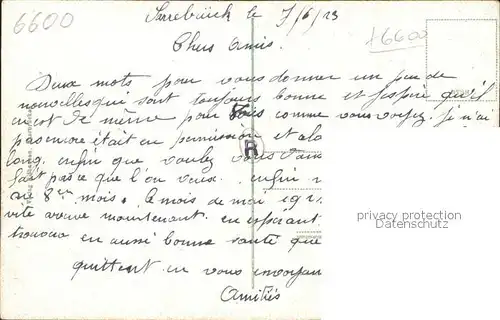 6600
+6600
Sarrebrück le 7/6/23
Chers Amis.
Deux mots pour vous donner un peu de
nouvelles qui sont toujours bonne et j'espère qu'il
en est de meme pour vous comme vous voyez. je n'ai
pas encore était en permission et a la
long. enfin que voulez vous
fait pas ce que l'on veux. enfin
au 8em mois. le mois de mai 192
vite venue maintenant. en espérant
trouver en aussi bonne santé que
quittent. en vous envoyan
Amitiés
R
privacy protection
Datenschutz